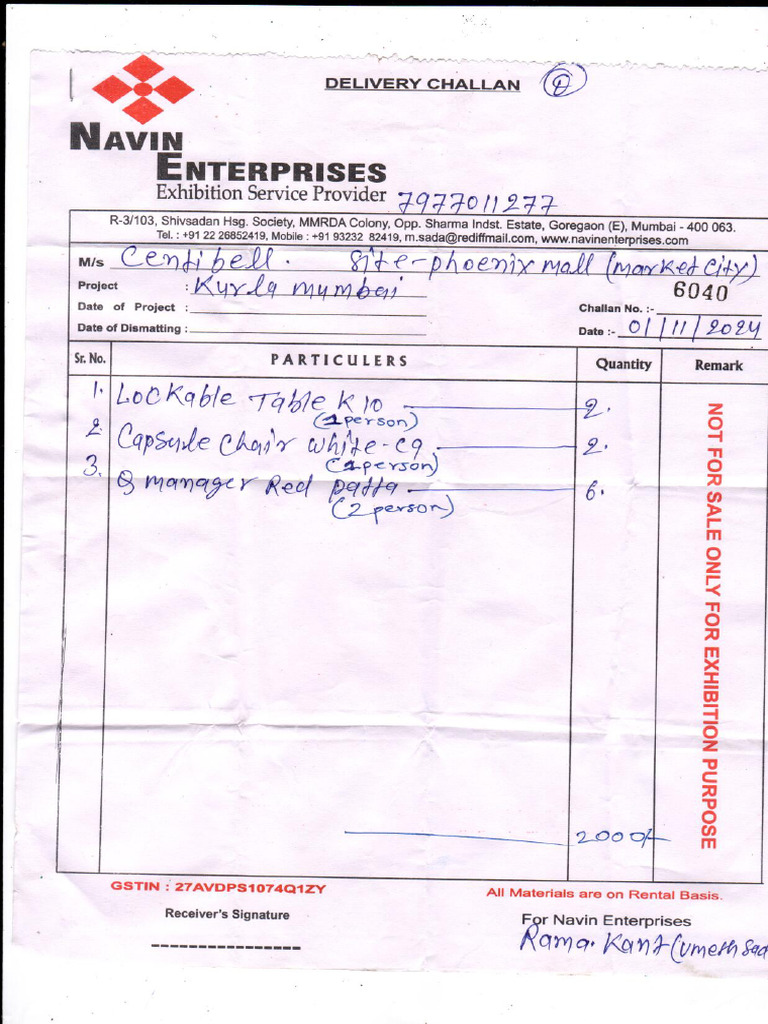 DELIVERY CHALLAN
NAVIN
ENTERPRISES
Exhibition Service Provider 7977011277
R-3/103, Shivsadan Hsg. Society, MMRDA Colony, Opp. Sharma Indst. Estate, Goregaon (E), Mumbai - 400 063.
Tel. : +91 22 26852419, Mobile : +91 93232 82419, m.sada@rediffmail.com, www.navinenterprises.com
M/s Centibell. Site-phoenix mall (market city)
Project : Kurla mumbai 6040
Date of Project : Challan No. :-
Date of Dismatting : Date :- 01/11/2024
Sr. No. PARTICULERS Quantity Remark
1. Lockable Table K10 2.
(1person)
2. Capsule chair white-c9. 2.
(1person)
3. Q manager Red patta 6.
(2 person)
NOT FOR SALE ONLY FOR EXHIBITION PURPOSE
2000/-
GSTIN : 27AVDPS1074Q1ZY All Materials are on Rental Basis.
Receiver's Signature For Navin Enterprises
Rama. Kant (umesh sad